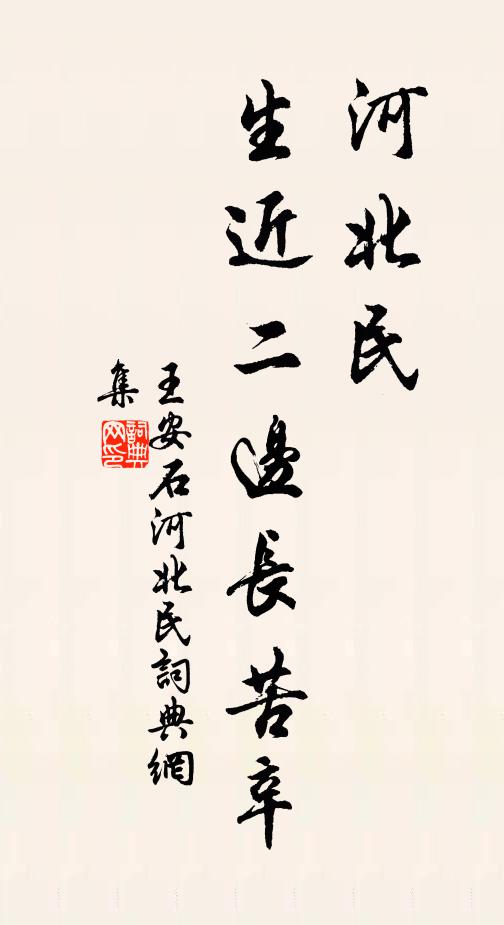 河北民
生近二邊長苦辛
王安石河北民詞典網
集
詞典
网印